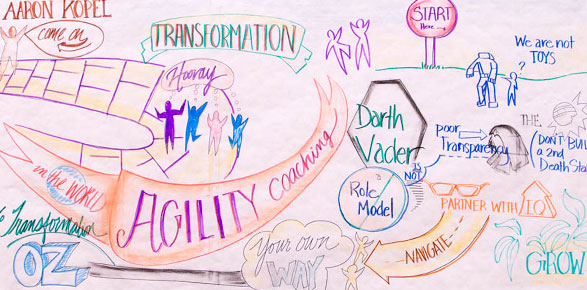 AARON KOPEL
come on
TRANSFORMATION
START
Here
We are not
TOYS
?
Hooray
Darth
Vader
IS
NOT
Role
Model
poor
Transparency
THE
(DON'T BUIL
a 2nd
Death Sta
in the WORLD
AGILITY coaching
PARTNER WITH
NAVIGATE
Your own
WAY
to Transformation
OZ
GROW